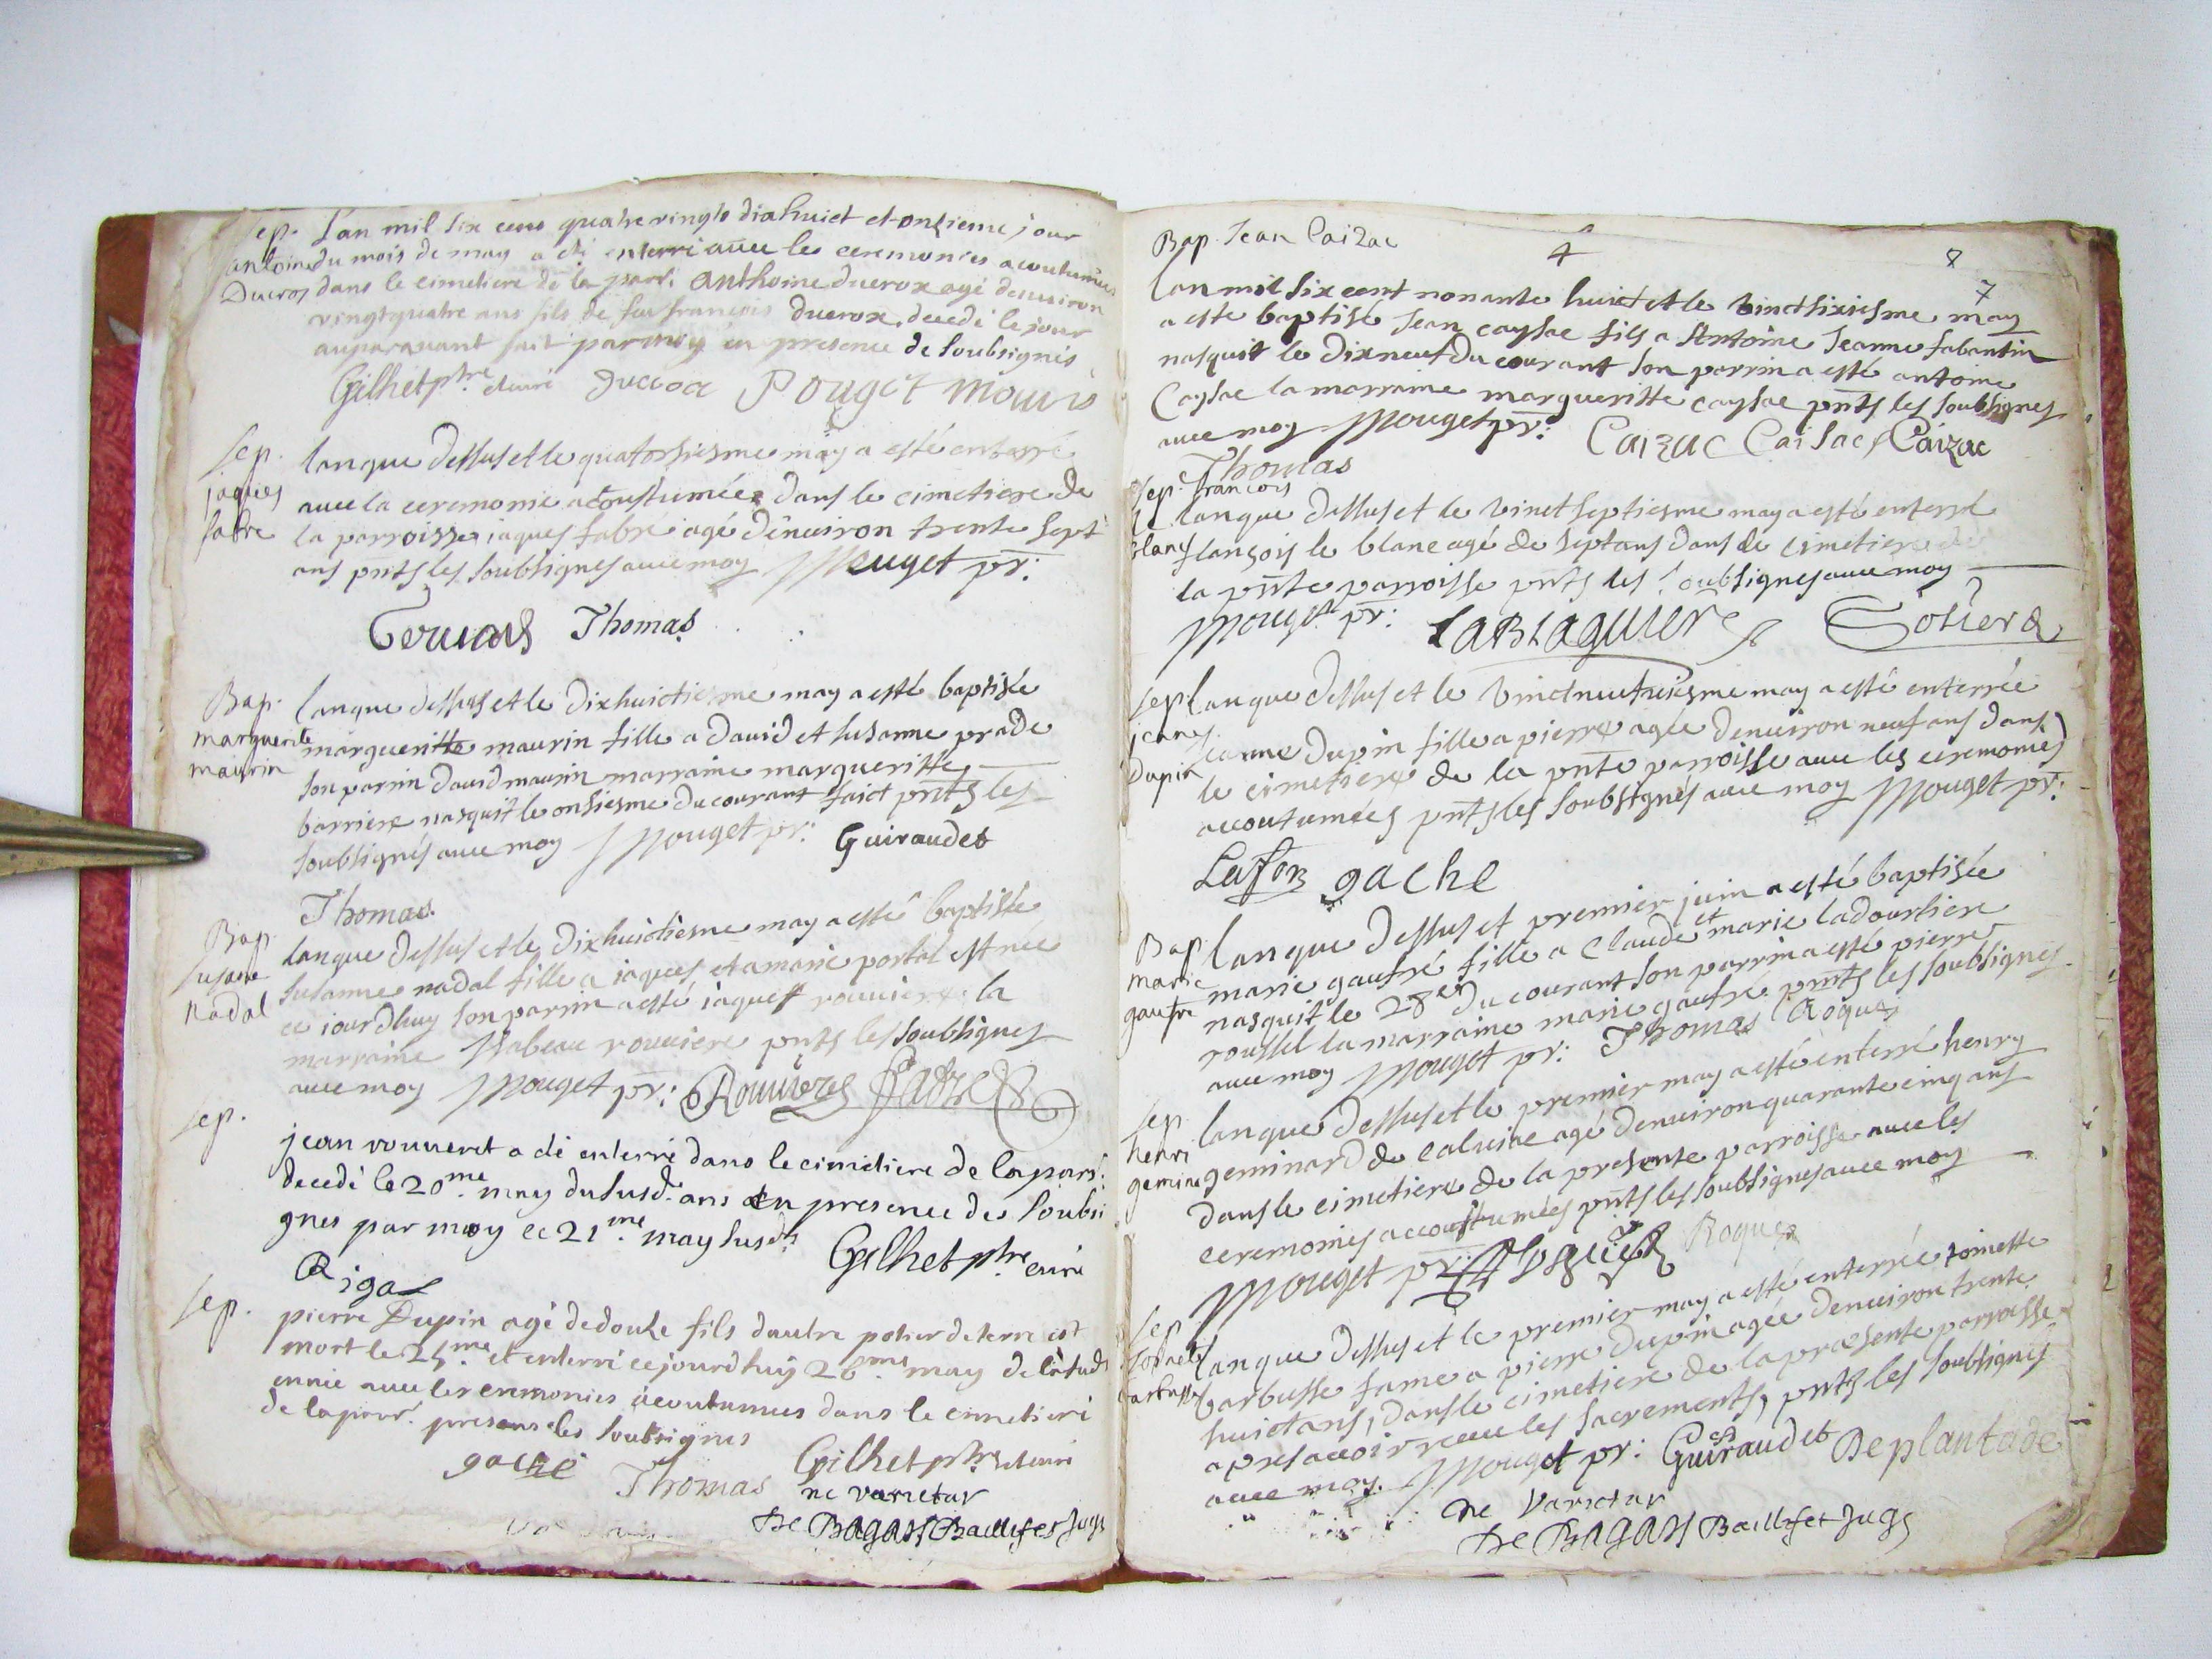 Sep. Lan mil six cens quatre vingts dixhuict et onzieme jour
antoine du mois de may a eté enterri avec les ceremonies acoutumées
Ducros dans le cimetiere de la parr. anthoine ducrox agé denuiron
vingtquatre ans fils de feu françois ducrox decedé le jour
auparavant fait par moy en presence de soubsignés
Gilhet ptre Pouget
Sep. lanque dessus et le quatorsiesme may a esté enterré
jaques auec la ceremonie acoustumée dans le cimetiere de
fabre la parroisse iaques fabre agé denuiron trente sept
ans pnts les soubsignes auec moy Mouget pr:
Thomas
Bap. lanque dessus et le dixhuictiesme may a esté baptisée
marguerite margueritte maurin fille a dauid et susanne prade
maurin son parrin dauid maurin marraine margueritte
barriere nasquit le onsiesme du courant faict pnts les
soubsignés auec moy Mouget pr: Guiraudet
Thomas
Bap. lanque dessus et le dixhuictiesme may a esté baptisée
susane susanne nadal fille a iaques et a marie portal est née
nadal ce iourdhuy son parrin a esté iaques rouuiere la
marraine ysabeau rouuiere pnts les soubsignes
auec moy Mouget pr: Rouuieres fabre
Sep.
jean vouueret a eté enterré dans le cimetiere de la parr.
decedé le 20me. may du susd. ans en presence des soubsi
gnes par moy le 21me. may susd.
Rigal Gilhet ptre curé
Sep. pierre Dupin agé de douze fils dautre potier de terre est
mort le 25me. et enterré cejourdhuy 26me may de la susd.
année auec les ceremonies acoutumees dans le cimetiere
de la parr. presens les soubsignes
gache Thomas Gilhet ptre
ne varietur
De Bagars Baillif et juge
Bap. Jean Caizac 4 8
7
lan mil six cent nonante huict et le vinctsixiesme may
a esté baptisé Jean caysac fils a Antoine Jeanne fabantin
nasquit le dixneuf du courant son parrin a esté antoine
Caysac la marraine margueritte caysac pnts les soubsignes
auec moy Mouget pr: Caizac Caisac Caizac
Thomas
Sep. francois
lanque dessus et le vinctseptiesme may a esté enterré
blanc fransois le blanc agé de septans dans le cimetiere de
la pnte parroisse pnts les soubsignes auec moy
Mouget pr: LaBLaquiere
Sep. lanque dessus et le vinctneufuiesme may a esté enterrée
jeane Jeanne dupin fille a pierre agée denuiron neuf ans dans
Dupin le cimetiere de la pnte parroisse auec les ceremonies
accoutumées pnts les soubsignés auec moy Mouget pr:
Lafon gache
Bap. lanque dessus et premier juin a esté baptisée
marie marie gaufré fille a Claude et marie ladourtiere
gaufre nasquit le 28e du courant son parrin a esté pierre
roussel la marraine marie gaufré pnts les soubsignes
auec moy Mouget pr: Thomas Roques
Sep. lanque dessus et le premier may a esté enterré henry
henri geminard de caluire agé denuiron quarante cinq ans
gemina dans le cimetiere de la presente parroisse auec les
ceremonies accoustumées pnts les soubsignes auec moy
Mouget pr: Roques
Sep. lanque dessus et le premier may a esté enterrée toinette
barbusse fame a pierre dupin agée denuiron trente
huictans, dans le cimetiere de la presente parroisse
apres auoir receu les sacrements, pnts les soubsignes
auec moy Mouget pr: Guiraudet Deplantade
ne varietur
De Bagars Baillif et juge